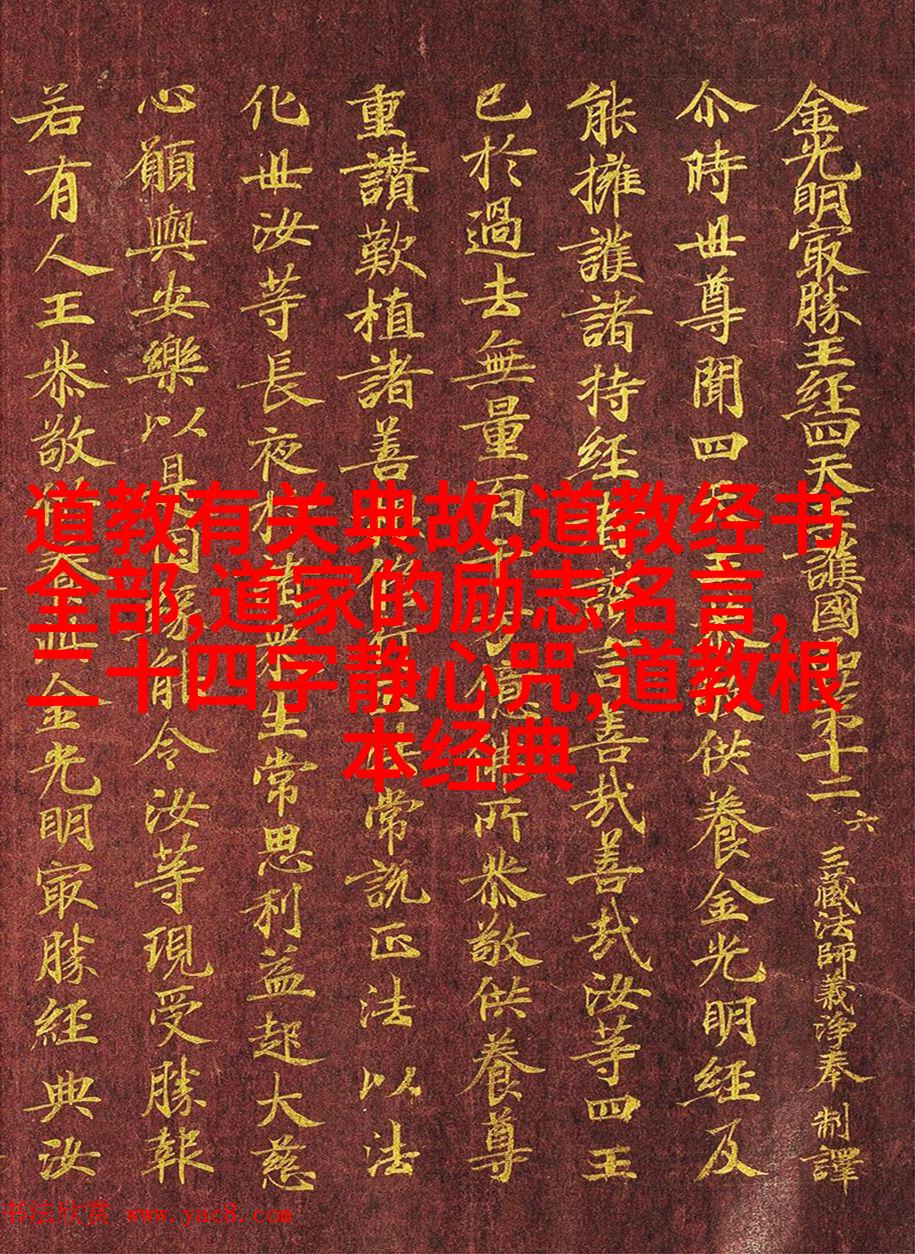 金光明冣勝王経四天王護國品第十二 六 三藏法師義淨奉 制譯
尒時世尊聞四供養金光明経及
能擁護諸持経善哉善哉汝等四王
已於過去無量百億所恭敬供養尊
重讃歎植諸善常說正法以法
化世汝等長夜生常思利益起大慈
心願與安樂以是因能令汝等現受勝報
若有人王恭敬金光明冣勝経典汝
道教有关典故,道教经书
全部,道家的励志名言,
二十四字静心咒,道教根
本经典
书法欣赏 www.yac8.com